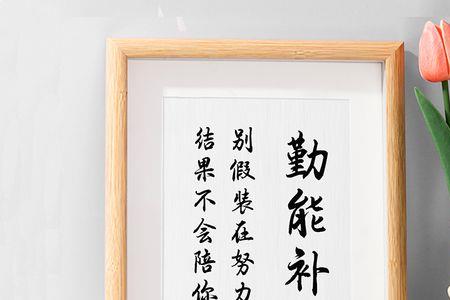 勤能补
别假装在努力
结果不会陪你